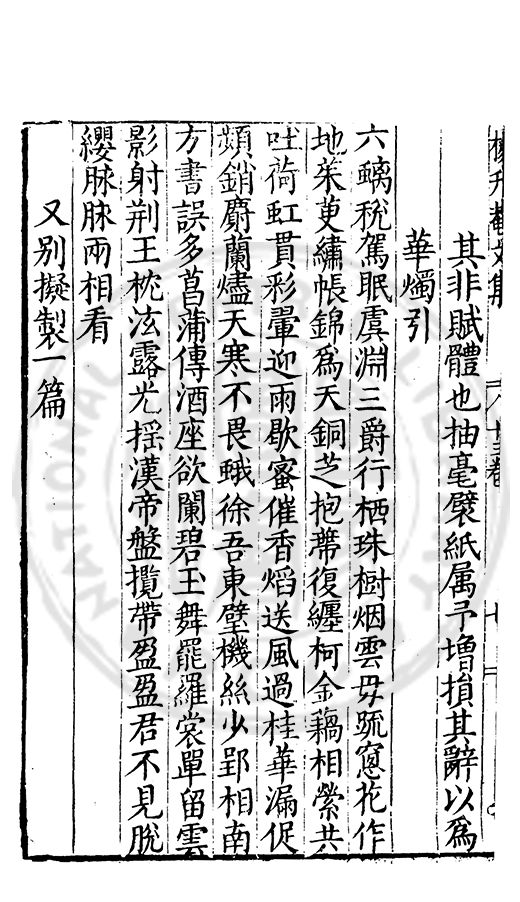 其非賦體也抽毫襞紙属予增損其辭以爲
華燭引
六螭稅駕眠虞淵三爵行栖珠樹烟雲母疏窓花作
地茱萸繡帳錦爲天銅芝抱帶復纏柯金藕相縈共
吐荷虹貫彩暈迎雨歇蜜催香熖送風過桂華漏促
頻銷麝蘭燼天寒不畏蛾徐吾東壁機絲少郢相南
方書誤多菖蒲傳酒座欲闌碧玉舞罷羅裳單留雲
影射荆王枕泫露光揺漢帝盤攬帶盈盈君不見脫
纓脉脉兩相看
又别擬製一篇